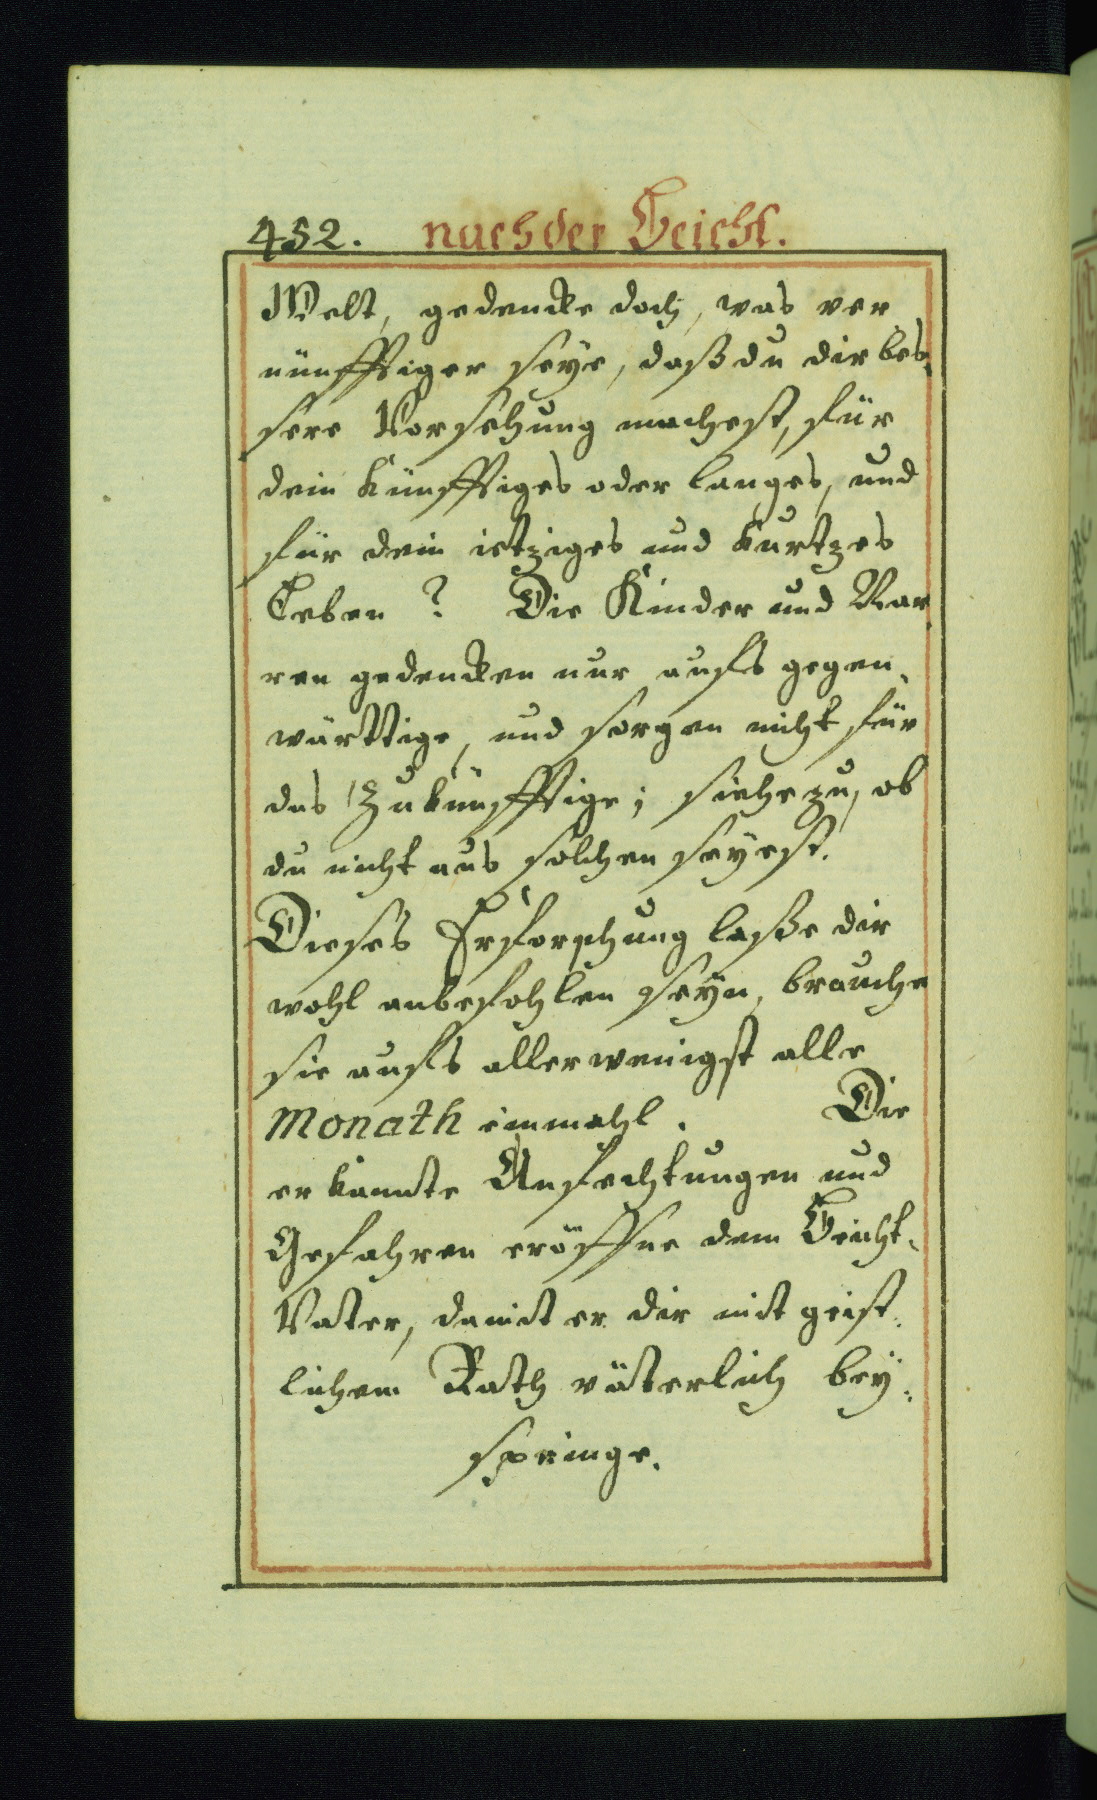 452. nach der Beicht.
Welt, gedencke doch, was ver
nünfftiger seye, daß du dir bes,
sere Vorsehung machest, für
dein künfftiges oder langes, und
für dein ietziges und kurtzes
Leben? Die Kinder und Nar,
ren gedencken nur aufs gegen,
wärttige, und sorgen nicht für
das Zukünfftige; siehe zu, ob
du nicht aus solchen seyest.
Dieses Erforschung laße dir
wohl anbefohlen seyn, brauche
sie aufs allerwenigst alle
Monath einmahl. Die
erkannte Anfechtungen und
Gefahren eröffne dem Beicht,
Vater, damit er dir mit geist,
lichem Rath väterlich bey,
springe.